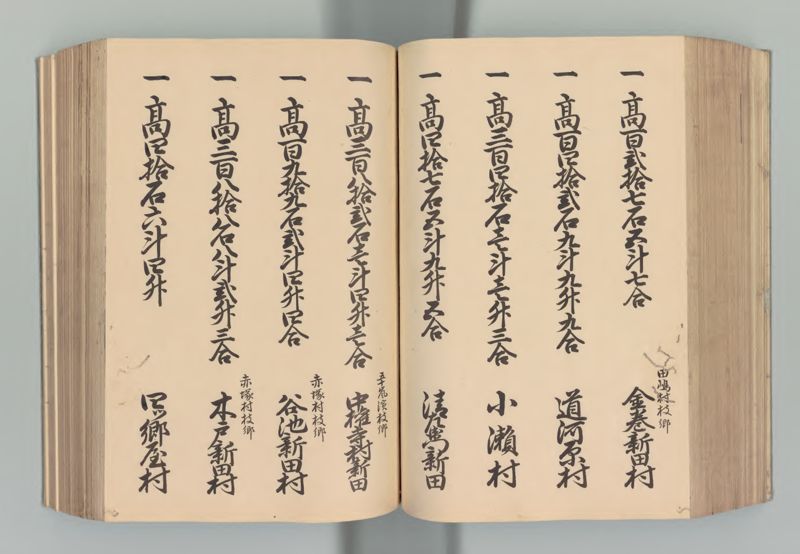 一 高百弐拾七石五斗七合
田嶋村枝郷
金巻新田村
一 高百四拾弐石九斗九升九合
道河原村
一 高三百四拾石壱斗壱升三合
小瀬村
一 高四拾七石五斗九升五合
新田
一 高三百八拾弐石壱斗四升壱合
五十嵐濱枝郷
中権寺村新田
一 高百九拾九石弐斗四升四合
赤塚村枝郷
谷池新田村
一 高三百八拾八石八斗弐升三合
赤塚村枝郷
木戸新田村
一 高四拾石六斗四升
四ツ郷屋村